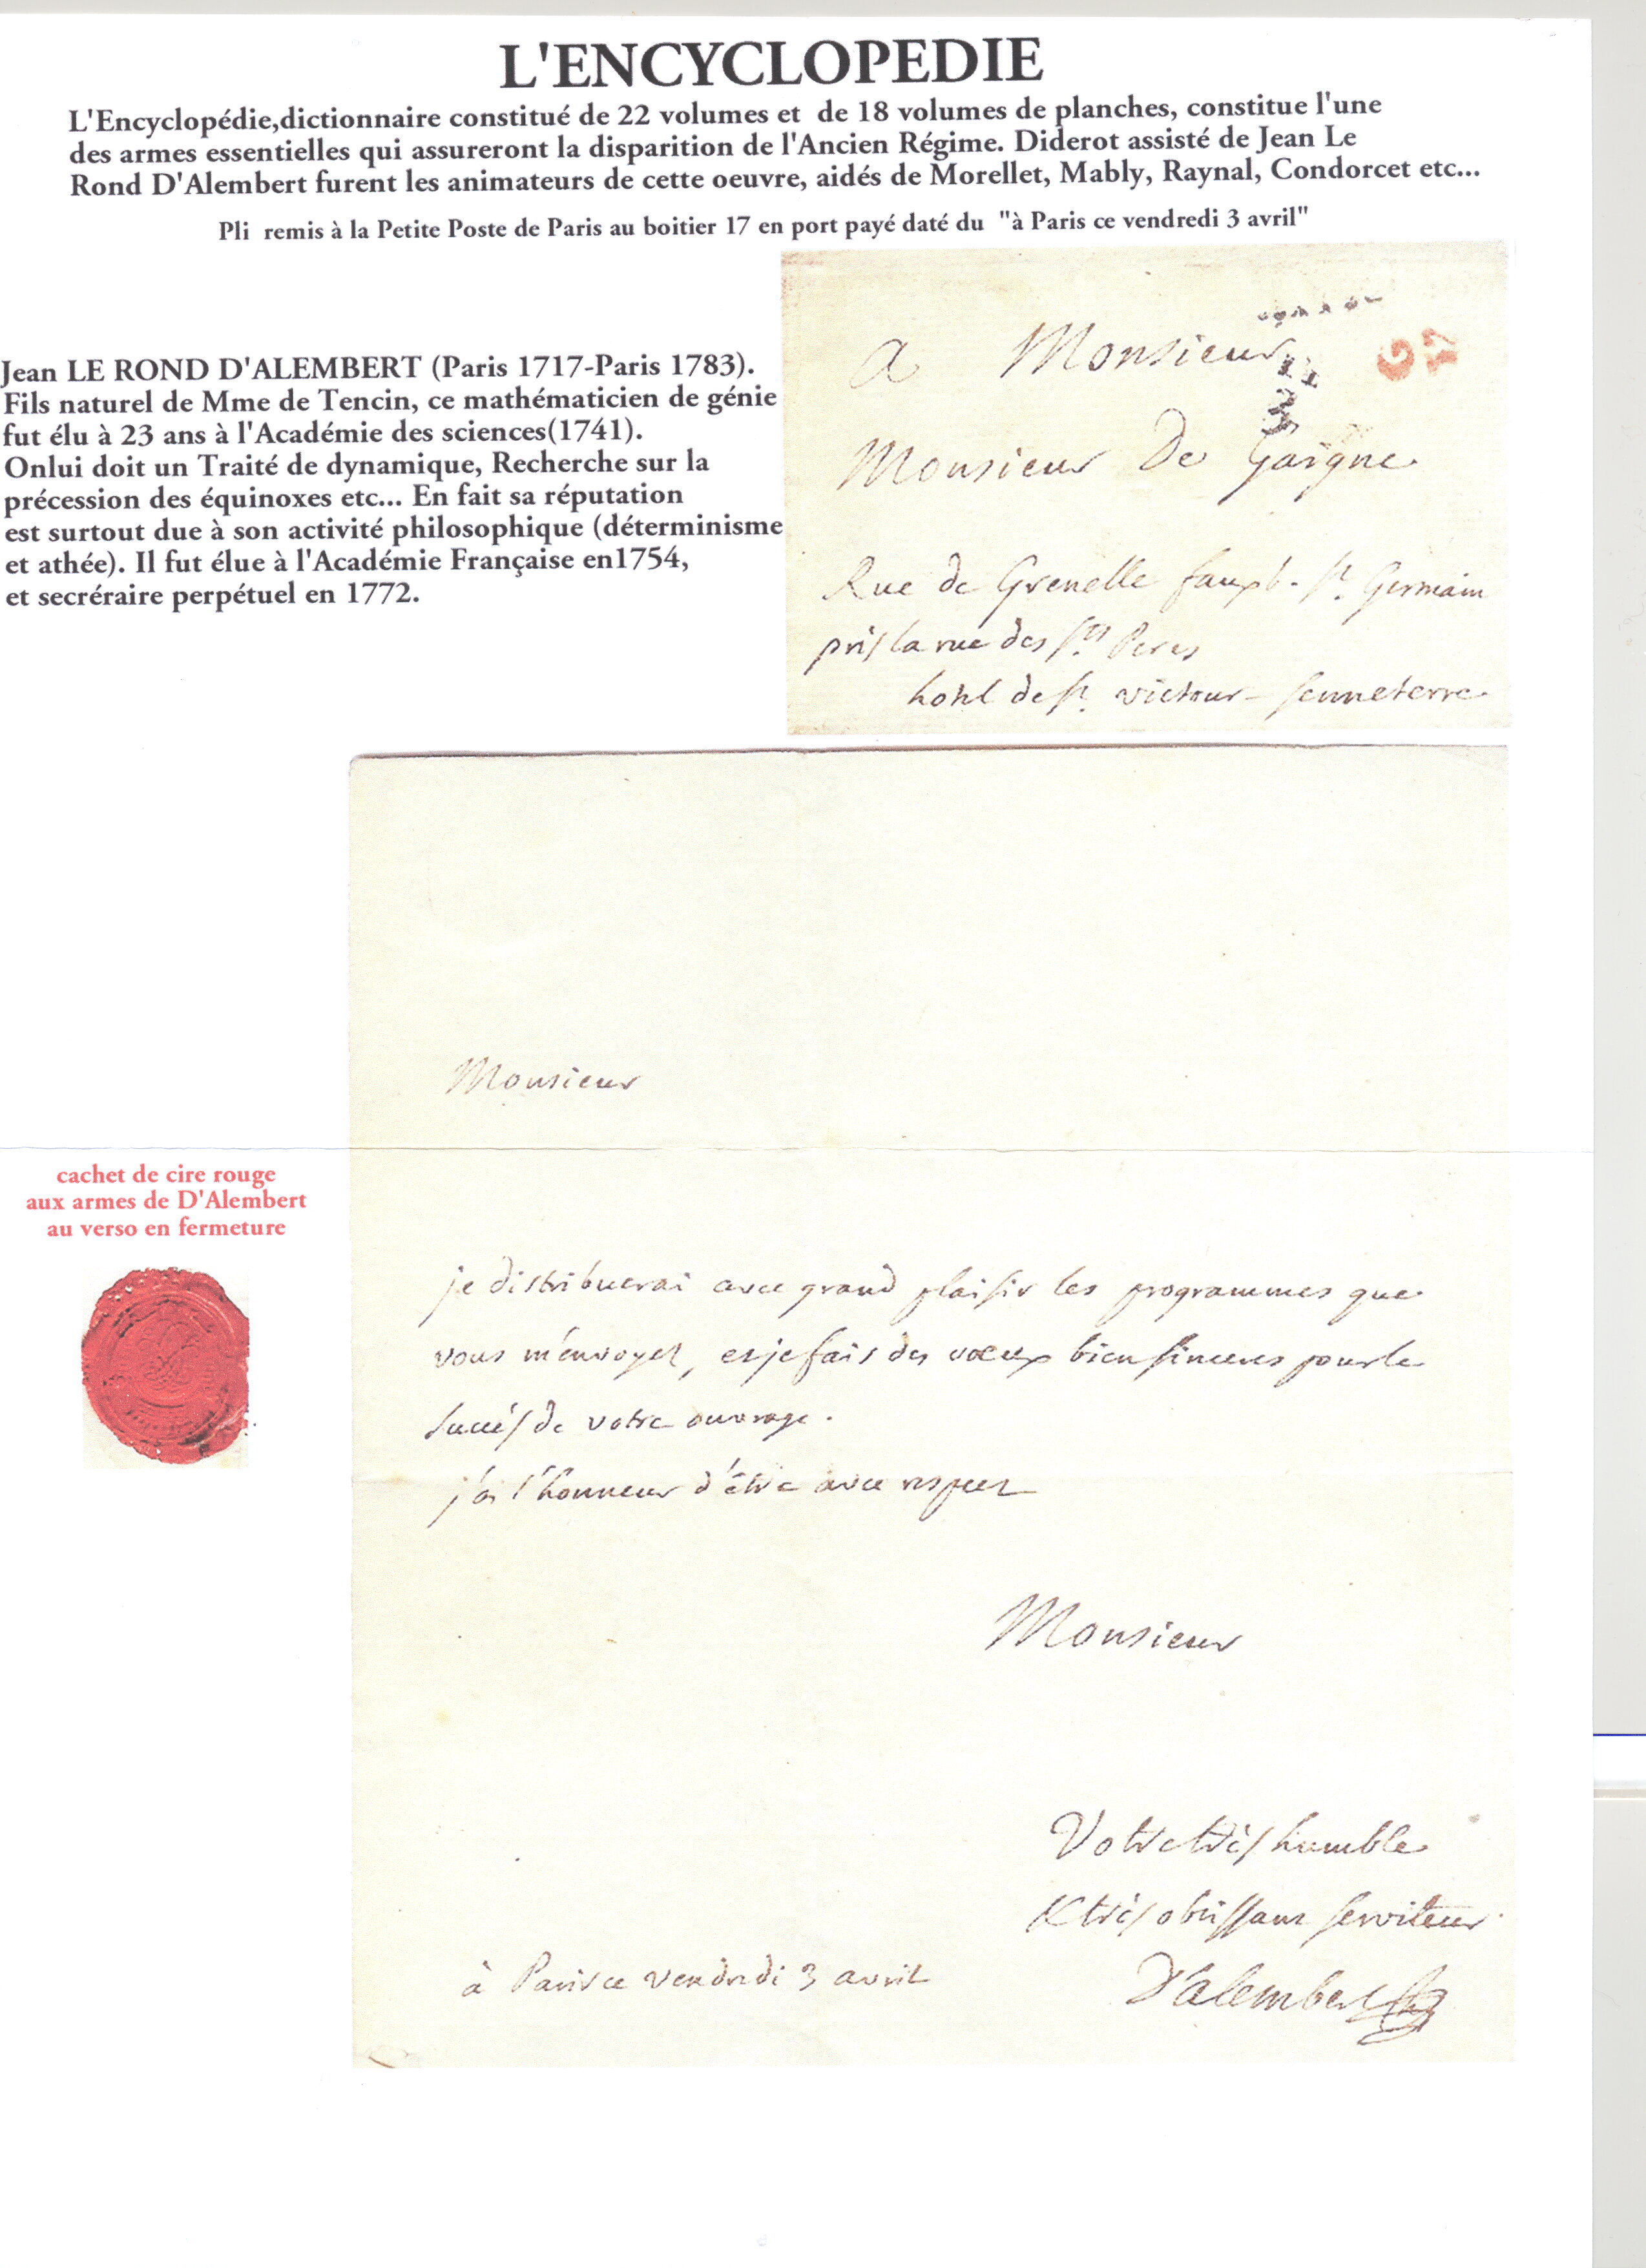 L'ENCYCLOPEDIE
L'Encyclopédie,dictionnaire constitué de 22 volumes et de 18 volumes de planches, constitue l'une
des armes essentielles qui assureront la disparition de l'Ancien Régime. Diderot assisté de Jean Le
Rond D'Alembert furent les animateurs de cette oeuvre, aidés de Morellet, Mably, Raynal, Condorcet etc...
Pli remis à la Petite Poste de Paris au boitier 17 en port payé daté du "à Paris ce vendredi 3 avril"
Jean LE ROND D'ALEMBERT (Paris 1717-Paris 1783).
Fils naturel de Mme de Tencin, ce mathématicien de génie
fut élu à 23 ans à l'Académie des sciences(1741).
Onlui doit un Traité de dynamique, Recherche sur la
précession des équinoxes etc... En fait sa réputation
est surtout due à son activité philosophique (déterminisme
et athée). Il fut élue à l'Académie Française en1754,
et secréraire perpétuel en 1772.
a Monsieur
G 17
Monsieur De Gaigne
Rue de Grenelle fauxb. St. Germain
près la rue des Sts Peres
hotel de St. victour - senneterre
Monsieur
cachet de cire rouge
aux armes de D'Alembert
au verso en fermeture
je distribuerai avec grand plaisir les programmes que
vous m'envoyez, et je fais des vœux bien sinceres pour le
succès de votre ouvrage.
j'ai l'honneur d'être avec respect
Monsieur
Votre très humble
& très obéissant serviteur
à Paris ce vendredi 3 avril
D'alembert